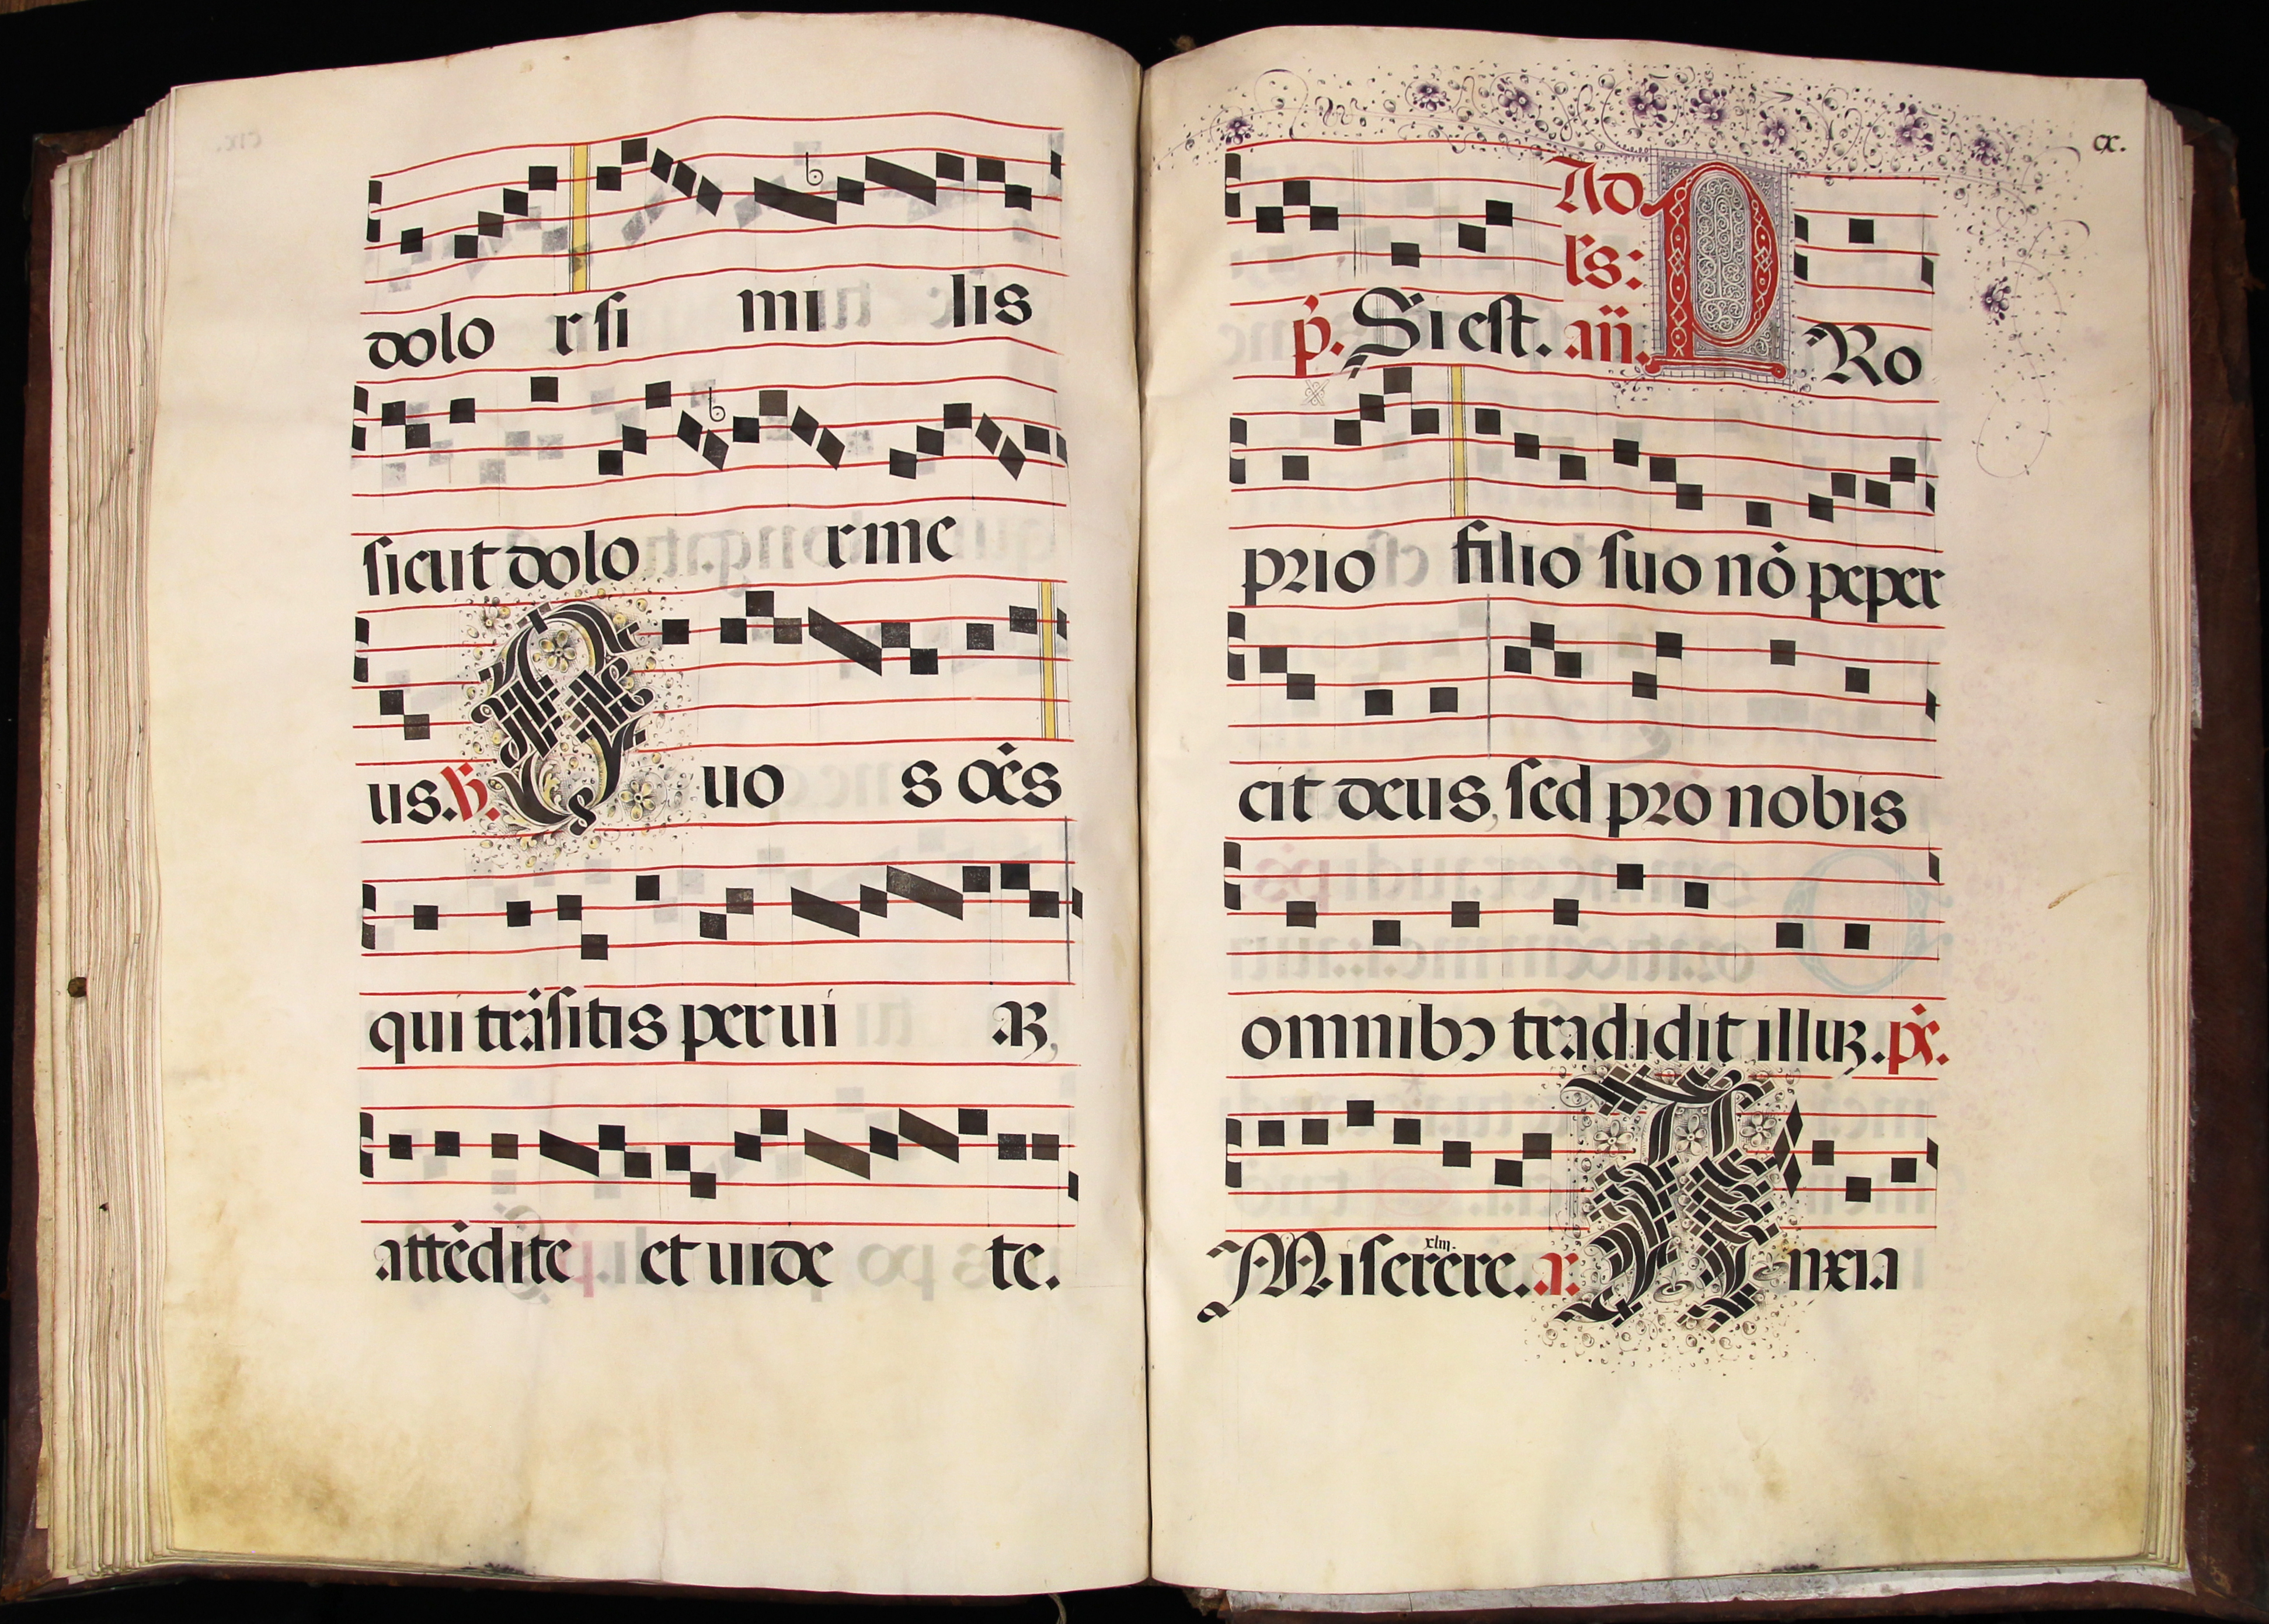 dolo r si mi lis
sicut dolo r me
us. ℟. Quo s oēs
qui trāsitis per ui aꝫ,
attēdite et uide te.
cx.
Ad
ls:
p̄. Si est. añ. PRo
prio filio suo nō peper
cit deus, sed pro nobis
omnibꝰ tradidit illuꝫ. p̄s.
xliii.
Miserere. a: Anxia